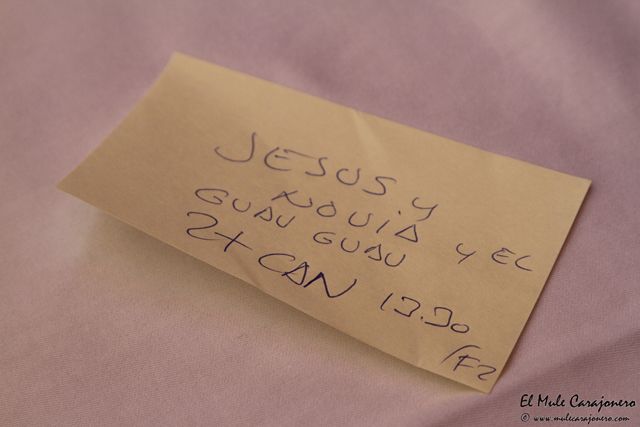 JESUS Y
NOVIA Y EL
GUAU GUAU
2+ CAN 13.30
/F2
El Mule Carajonero
© www.mulecarajonero.com